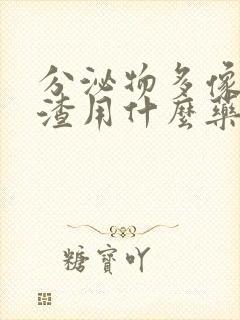 分泌物多像
渣用什麼藥
糖寶吖